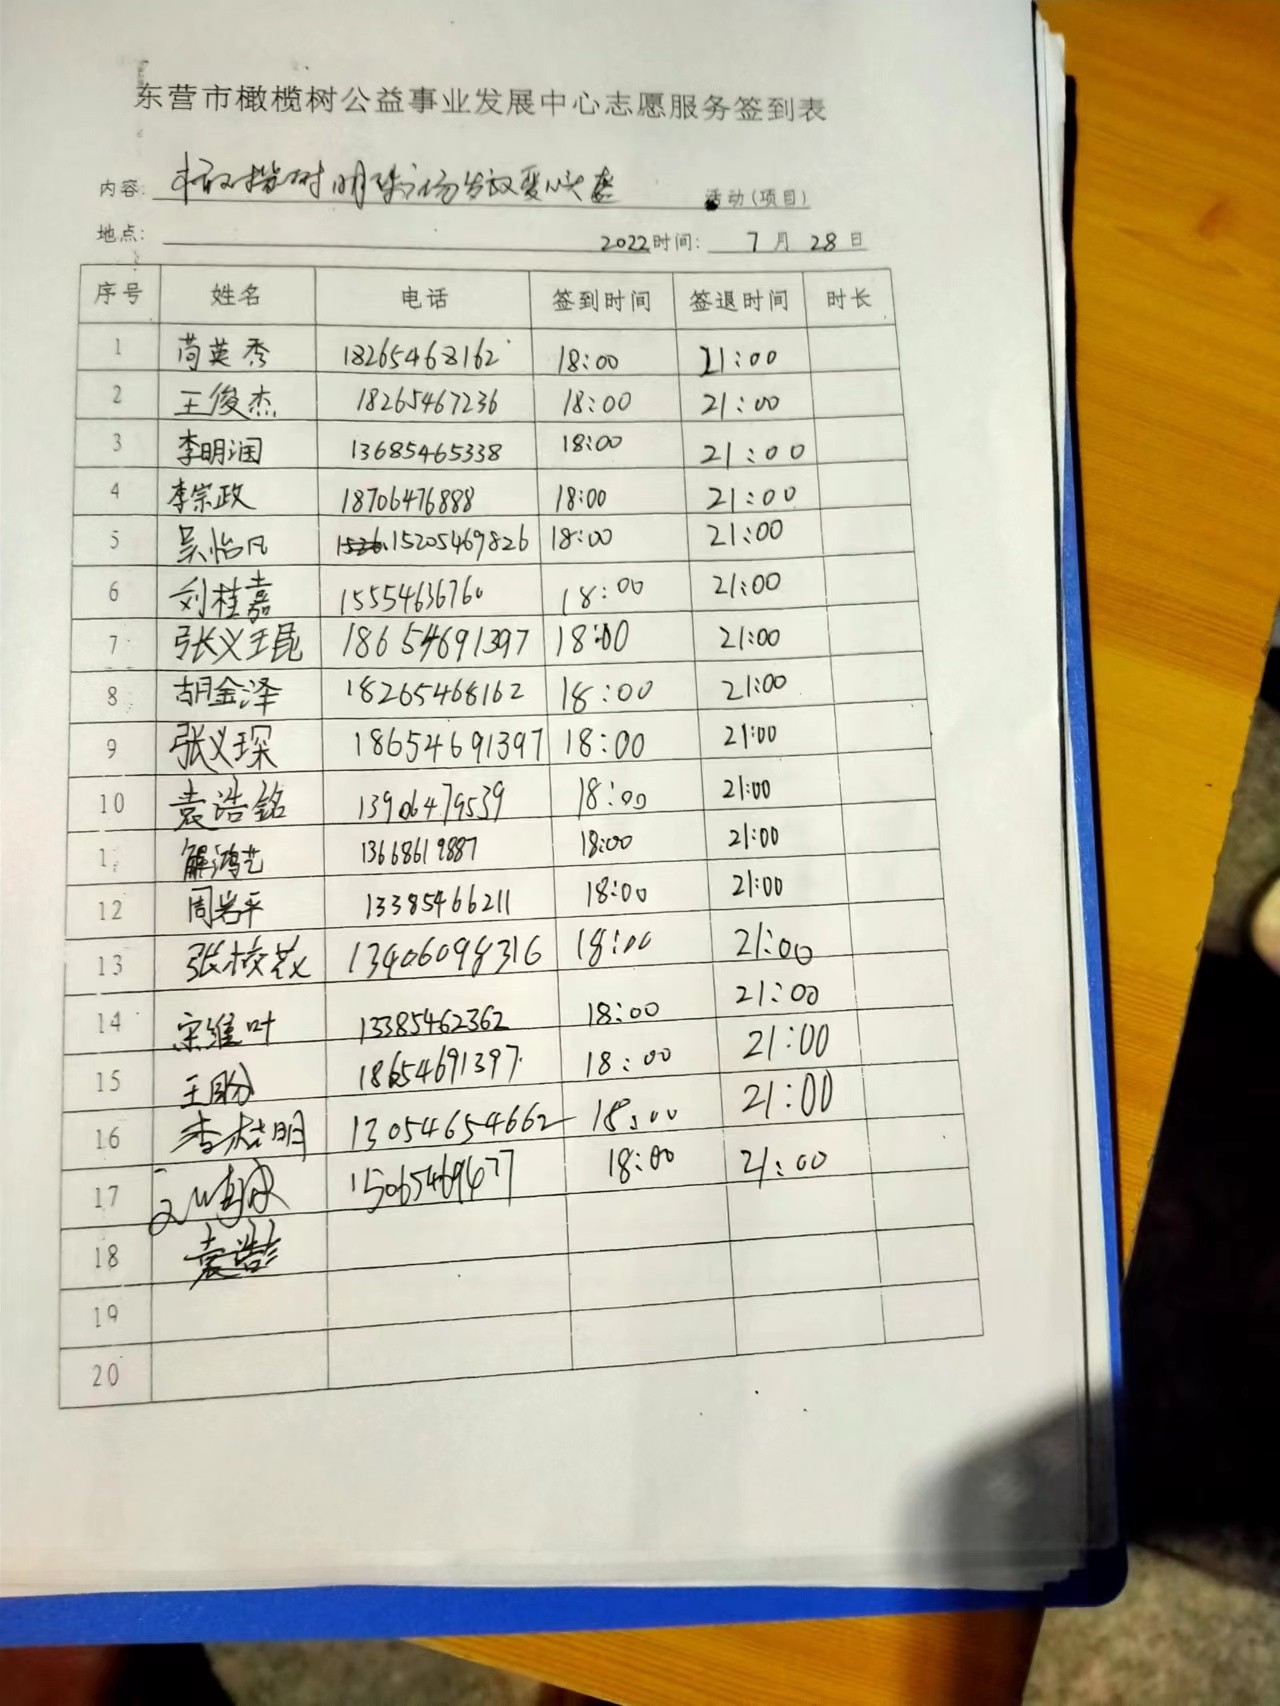 东营市橄榄树公益事业发展中心志愿服务签到表
内容: 橄榄树明珠广场发放爱心 活动(项目)
地点: 2022时间: 7月28日
序号 姓名 电话 签到时间 签退时间 时长
1 苘英秀 18265468162 18:00 21:00
2 王俊杰 18265467236 18:00 21:00
3 李明润 13685465338 18:00 21:00
4 李宗政 18706476888 18:00 21:00
5 吴怡凡 15205469826 18:00 21:00
6 刘桂嘉 15554636760 18:00 21:00
7 张义琨 18654691397 18:00 21:00
8 胡金泽 18265468162 18:00 21:00
9 张义琛 18654691397 18:00 21:00
10 袁浩铭 13906479539 18:00 21:00
1 解鸿艺 13668619887 18:00 21:00
12 周岩平 13385466211 18:00 21:00
13 张校 13406098316 18:00 21:00
14 宋维叶 13385462362 18:00 21:00
15 王盼 18654691397 18:00 21:00
16 李桂明 13054654662 18:00 21:00
17 15065469677 18:00 21:00
18 袁浩
19
20